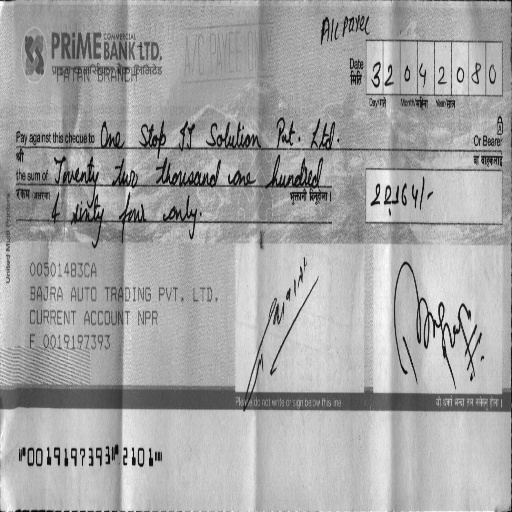 A/C Payee
PRIME COMMERCIAL BANK LTD.
A/C PAYEE ONLY
PATAN BRANCH
Date
मिति
3 2 0 4 2 0 8 0
Day/गते Month/महिना Year/साल
Pay against this cheque to One Stop IT Solution Pvt. Ltd. Or Bearer
श्री वा वाहकलाई
the sum of Twenty two thousand one hundred
रकम (अक्षरेपी) भुक्तानी दिनुहोला ।
& sixty four only.
22,164/-
00501483CA
BAJRA AUTO TRADING PVT. LTD.
CURRENT ACCOUNT NPR
F 0019197393
Please do not write or sign below this line.
"0019197393" 2101"